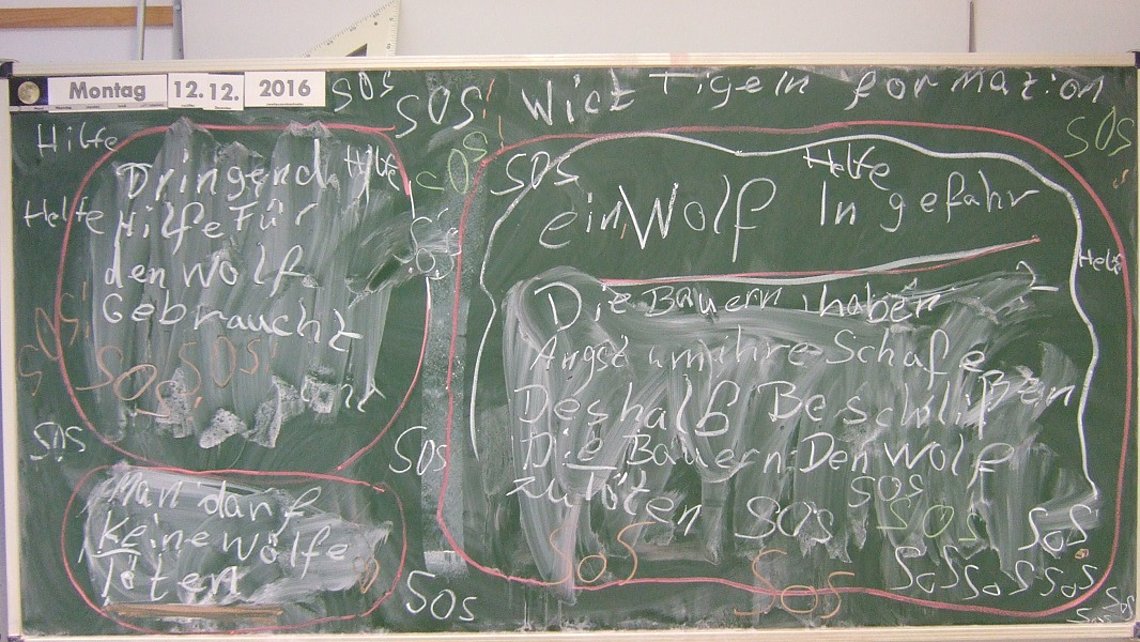 Montag 12. 12. 2016
SOS
SOS!
Wict Tigeln formazion
SOS
Hilfe
Helfe
Dringend
Hilfe Für
den Wolf
Gebraucht
Hilfe
SOS
SOS
SOS
SOS
Man darf
keine Wölfe
Töten
SOS
SOS
SOS
SOS
Helfe
ein Wolf In gefahr
Helfe
Die Bauern haben
Angst um ihre Schafe
Deshalb Beschlißen
Die Bauern Den Wolf
zu töten
SOS
SOS
SOS
SOS
SOS
SOS
SOS SOS SOS
SOS
SOS